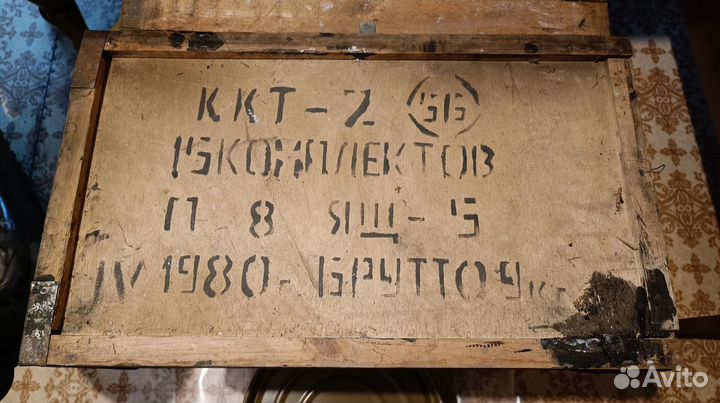 ККТ-2 56
15 КОМПЛЕКТОВ
П 8 ЯЩ-5
IV 1980- БРУТТО 9 кг
Avito